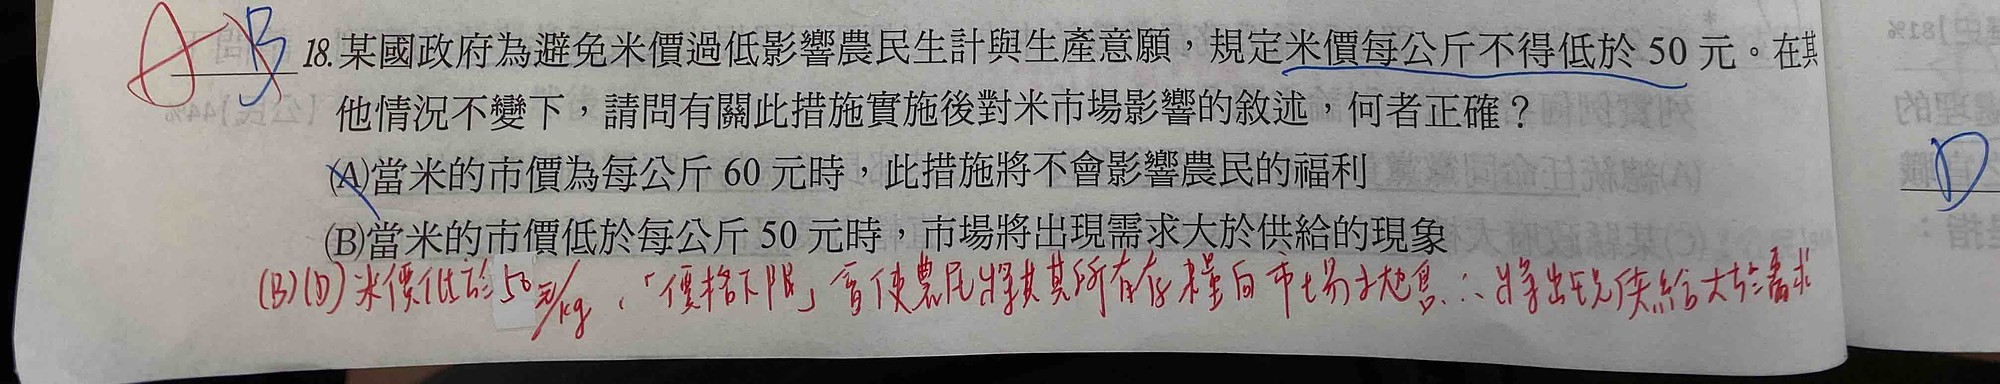 A B 18.某國政府為避免米價過低影響農民生計與生產意願，規定米價每公斤不得低於 50 元。在其
他情況不變下，請問有關此措施實施後對米市場影響的敘述，何者正確？
(A)當米的市價為每公斤 60 元時，此措施將不會影響農民的福利
(B)當米的市價低於每公斤 50 元時，市場將出現需求大於供給的現象
(B)(D) 米價低於 50 元/kg，「價格下限」會使農民將其所有存糧向市場 ∴將出現供給大於需求
D